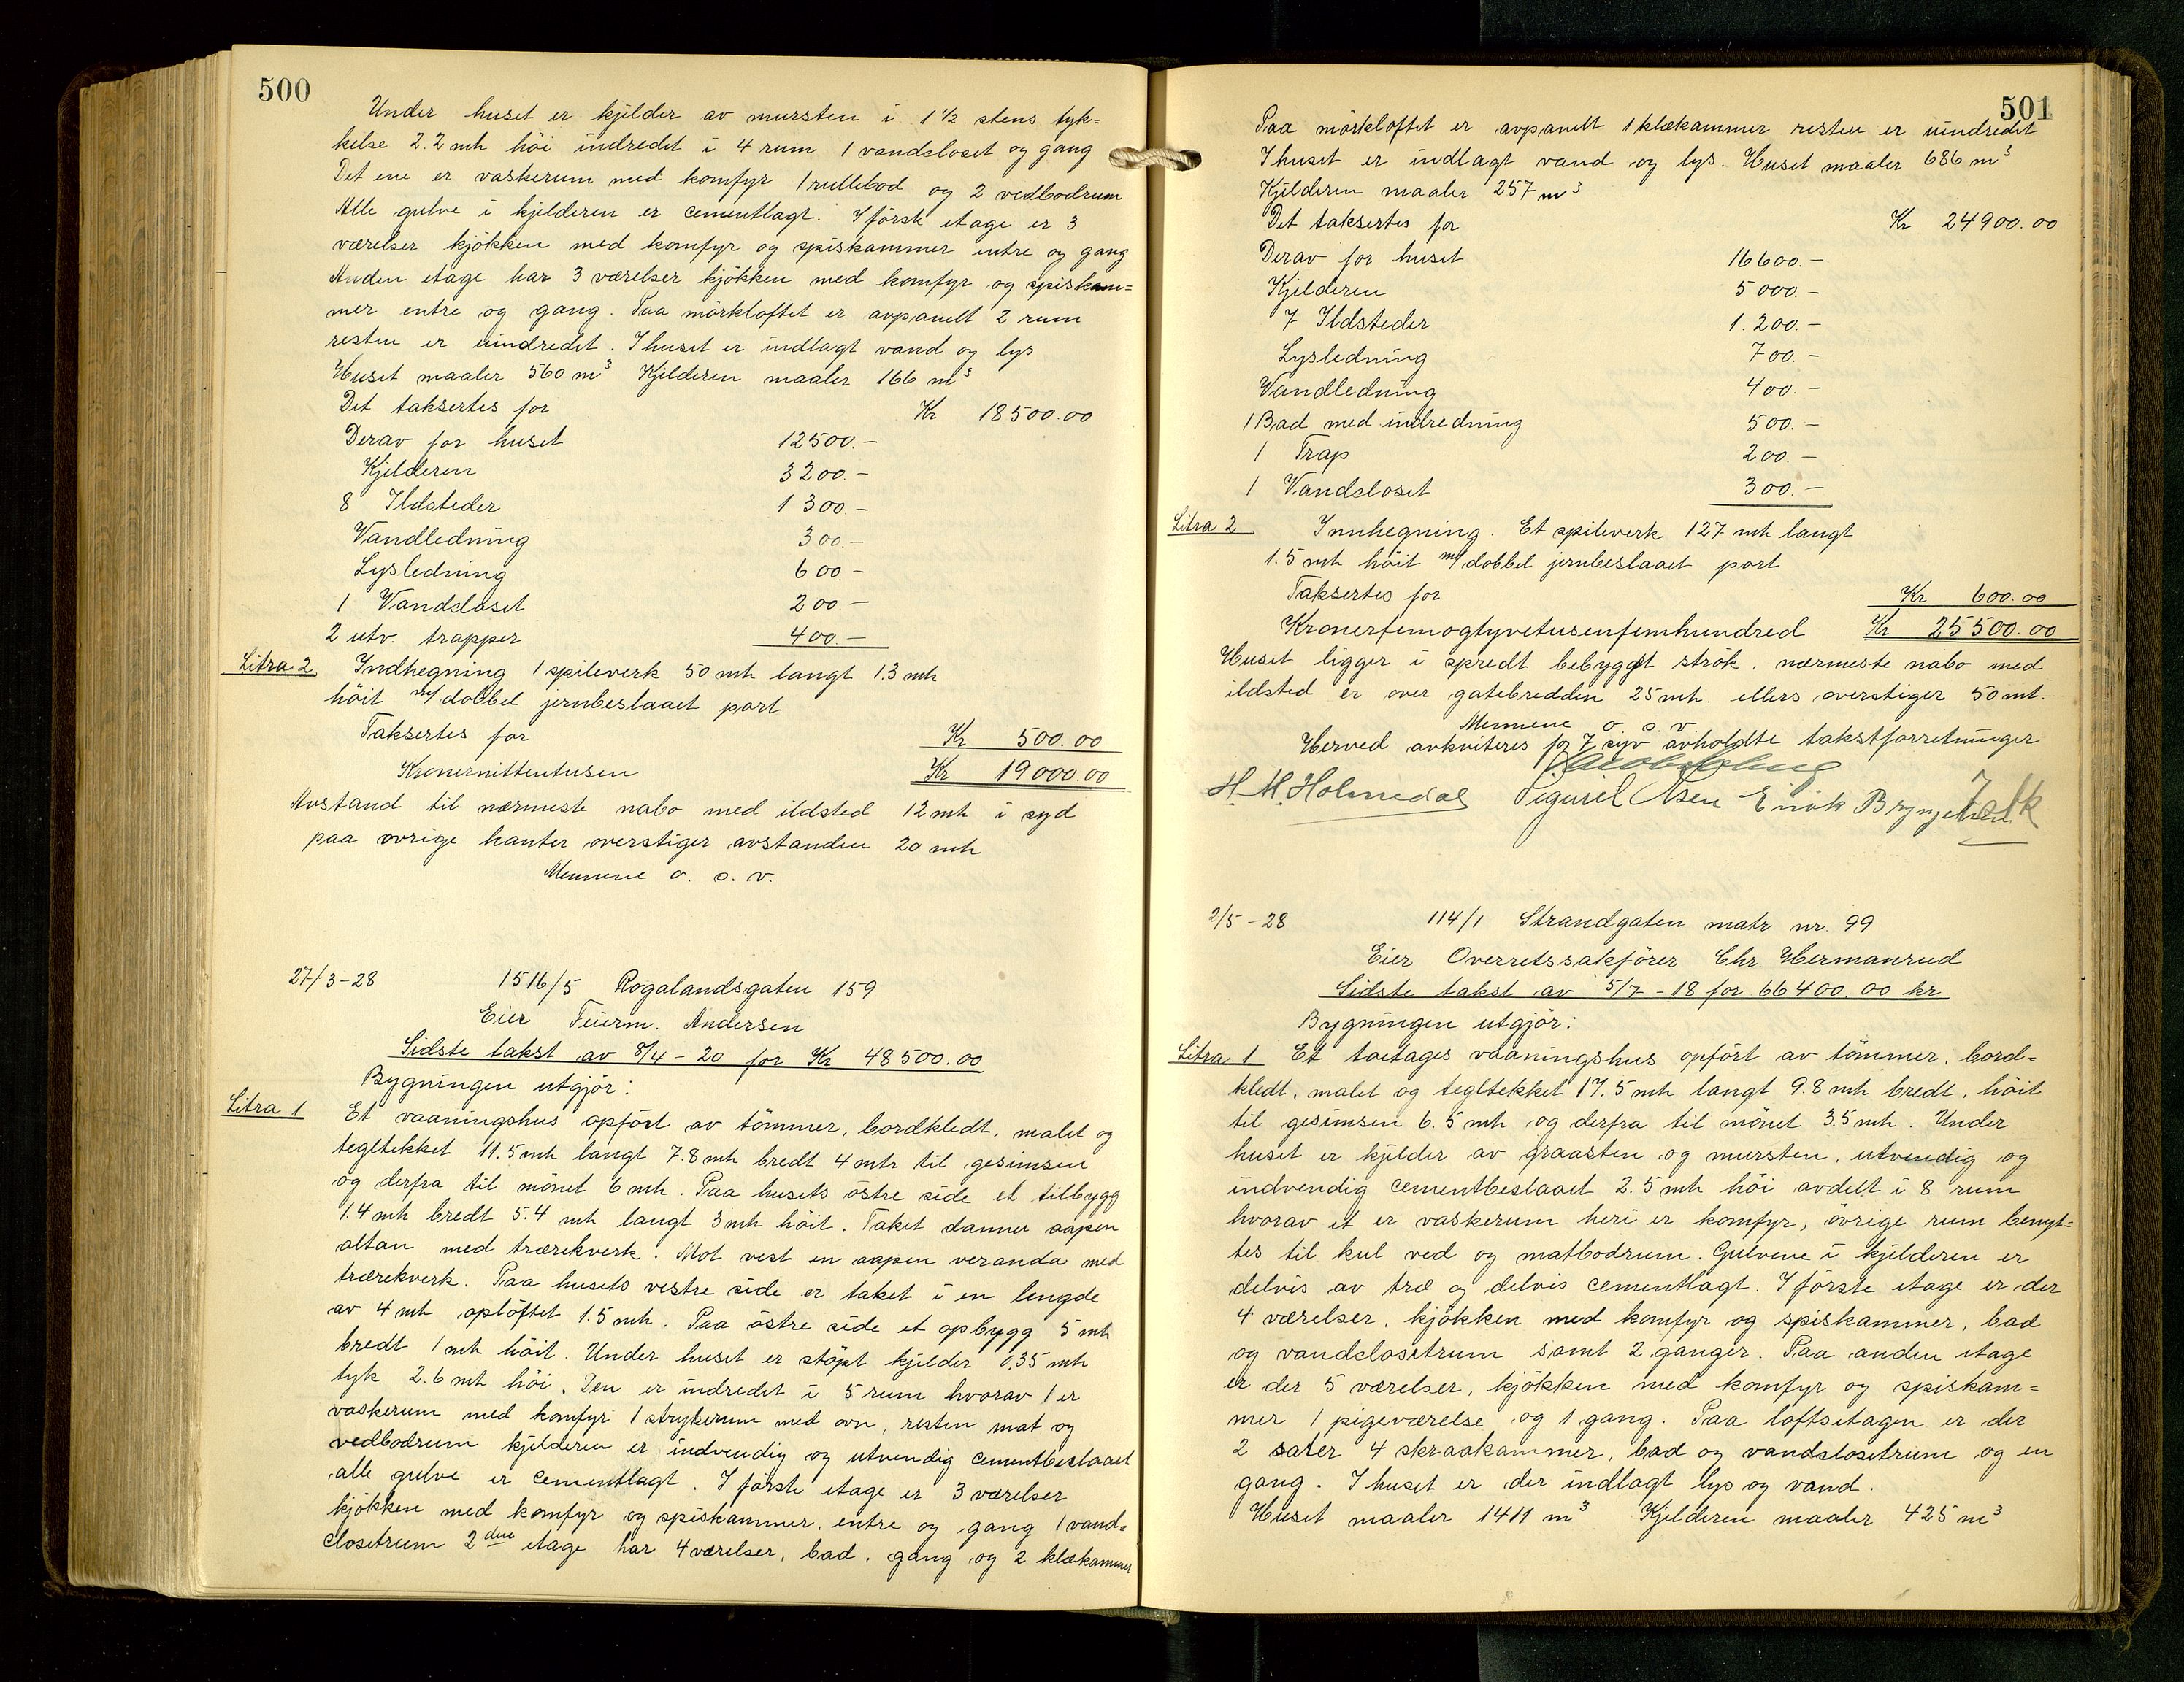 500
Under huset er kjelder av mursten i 1 1/2 stens tyk=
kelse 2.2 mtr höi indredet i 4 rum 1 vandcloset og gang
Det ene er vaskerum med komfyr 1 rullebod og 2 vedbodrum
Alle gulve i kjelderen er cementlagt. I förste etage er 3
værelser kjökken med komfyr og spiskammer entre og gang
Anden etage har 3 værelser kjökken med komfyr og spiskam=
mer entre og gang. Paa mörkloftet er avpanelt 2 rum
resten er uindredet. I huset er indlagt vand og lys
Huset maaler 560 m³ Kjelderen maaler 166 m³
Det taksertes for Kr 18500.00
Derav for huset 12500.-
Kjelderen 3200.-
8 Ildsteder 1300.-
Vandledning 300.-
Lysledning 600.-
1 Vandcloset 200.-
2 utv. trapper 400.-
Litra 2 Indhegning 1 spileverk 50 mtr langt 1.3 mtr
höit m/dobbel jernbeslaaet port
Taksertes for Kr 500.00
Kronernittentusen Kr 19000.00
Avstand til nærmeste nabo med ildsted 12 mtr i syd
paa övrige kanter overstiger avstanden 20 mtr
Mennene o. s. v.
27/3-28 1516/5 Rogalandsgaten 159
Eier Feierm. Andersen
Sidste takst av 8/4-20 for Kr 48500.00
Bygningen utgjör:
Litra 1 Et vaaningshus opfört av tömmer, bordkledt, malet og
tegltekket 11.5 mtr langt 7.8 mtr bredt 4 mtr til gesimsen
og derfra til mönet 6 mtr. Paa husets östre side et tilbygg
1.4 mtr bredt 5.4 mtr langt 3 mtr höit. Taket danner aapen
altan med trærekverk. Mot vest en aapen veranda med
trærekverk. Paa husets vestre side er taket i en lengde
av 4 mtr oplöftet 1.5 mtr. Paa östre side et opbygg 5 mtr
bredt 1 mtr höit. Under huset er stöpt kjelder 0.35 mtr
tyk 2.6 mtr höi. Den er indredet i 5 rum hvorav 1 er
vaskerum med komfyr 1 strykerum med ovn, resten mat og
vedbodrum kjelderen er indvendig og utvendig cementbeslaaet
alle gulve er cementlagt. I förste etage er 3 værelser
kjökken med komfyr og spiskammer, entre og gang 1 vand=
closetrum 2den etage har 4 værelser, bad, gang og 2 klækammer
501
Paa mörkloftet er avpanelt 1 klækammer resten er uindredet
I huset er indlagt vand og lys. Huset maaler 686 m³
Kjelderen maaler 257 m³
Det taksertes for Kr 24900.00
Derav for huset 16600.-
Kjelderen 5000.-
7 Ildsteder 1.200.-
Lysledning 700.-
Vandledning 400.-
1 Bad med indredning 500.-
1 Trap 200.-
1 Vandcloset 300.-
Litra 2 Innhegning. Et spileverk 127 mtr langt
1.5 mtr höit m/dobbel jernbeslaaet port
Taksertes for Kr 600.00
Kronerfemogtyvetusenfemhundred Kr 25500.00
Huset ligger i spredt bebygget strök, nærmeste nabo med
ildsted er over gatebredden 25 mtr. ellers overstiger 50 mt.
Mennene o. s. v.
Herved avkviteres for 7 syv avholdte takstforretninger
H. M. Holmedal Sigurd Olsen Enok Brynjelsen
2/5-28 114/1 Strandgaten matr nr. 99
Eier Overretssakförer Chr. Hermanrud
Sidste takst av 5/7-18 for 66400.00 kr
Bygningen utgjör:
Litra 1 Et toetages vaaningshus opfört av tömmer, bord=
kledt, malet og tegltekket 17.5 mtr langt 9.8 mtr bredt, höit
til gesimsen 6.5 mtr og derfra til mönet 3.5 mtr. Under
huset er kjelder av graasten og mursten, utvendig og
indvendig cementbeslaaet 2.5 mtr höi avdelt i 8 rum
hvorav et er vaskerum heri er komfyr, övrige rum benyt=
tes til kul ved og matbodrum. Gulvene i kjelderen er
delvis av træ og delvis cementlagt. I förste etage er der
4 værelser, kjökken med komfyr og spiskammer, bad
og vandclosetrum samt 2 ganger. Paa anden etage
er der 5 værelser, kjökken med komfyr og spiskam=
mer 1 pigeværelse og 1 gang. Paa loftsetagen er der
2 saler 4 skraakammer, bad og vandclosetrum og en
gang. I huset er der indlagt lys og vand.
Huset maaler 1411 m³ Kjelderen maaler 425 m³